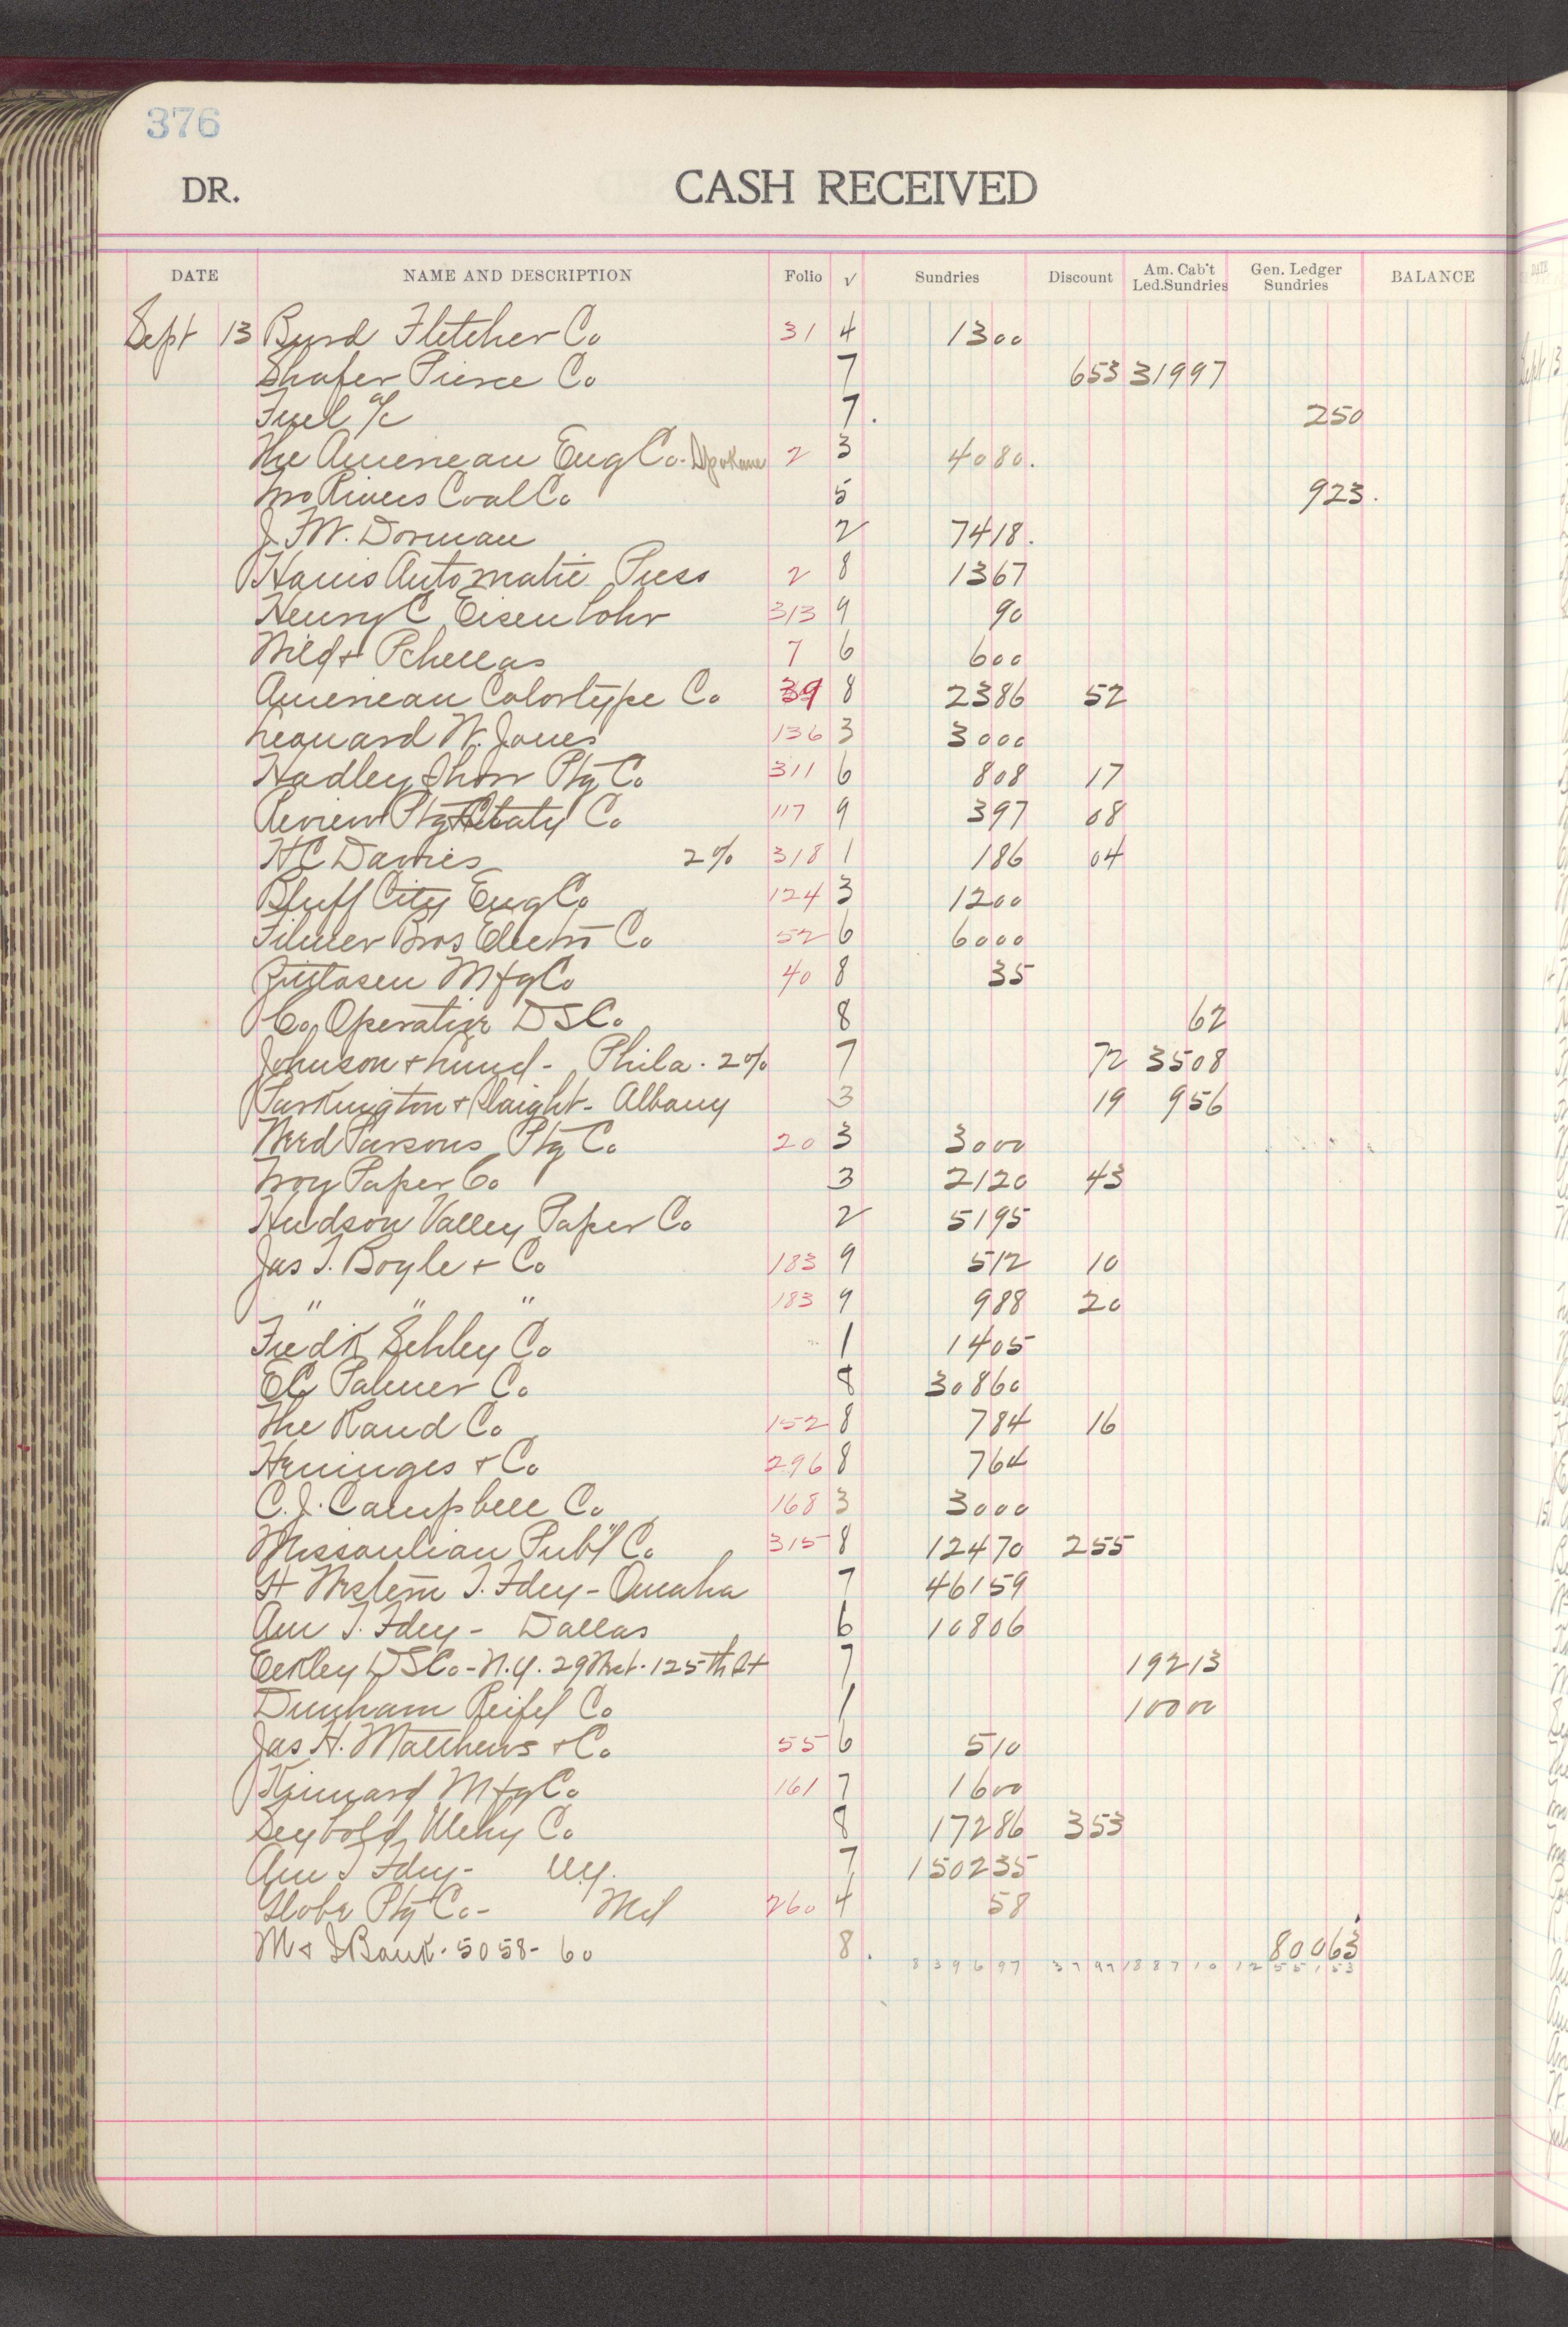 376
DR. CASH RECEIVED
DATE NAME AND DESCRIPTION Folio √ Sundries Discount Am. Cab't Led.Sundries Gen. Ledger Sundries BALANCE
Sept 13 Burd Fletcher Co 31 4 1300
Shafer Pierce Co 7 653 31997
Fuel a/c 7. 250
The American Eng Co. Spokane 2 3 4080.
Rivers Coal Co 5 923.
J. F. W. Dorman 2 7418.
Harris Automatic Press 2 8 1367
Henry C Eisenlohr 313 9 90
7 6 600
American Colortype Co 39 8 2386 52
Leonard W. Jones 136 3 3000
Hadley Show Ptg Co 311 6 808 17
Review Ptg & Co 117 9 397 08
HC Davies 2% 318 1 186 04
Bluff City Eng Co 124 3 1200
Filmer Bros Electro Co 52 6 6000
Mfg Co 40 8 35
Co Operative DS Co. 8 62
Johnson & Lund - Phila. 2% 7 72 3508
Parkington & Slaight - Albany 3 19 956
Weed Parsons Ptg Co 20 3 3000
Troy Paper Co 3 2120 43
Hudson Valley Paper Co 2 5195
Jas T. Boyle & Co 183 9 512 10
" " " 183 9 988 20
Fredk Schley Co 1 1405
EC Palmer Co 8 30860
The Rand Co 152 8 784 16
Henninges & Co 296 8 764
C. J. Campbell Co 168 3 3000
Missoulian Pub'l Co 315 8 12470 255
Gt Western T. Fdry - Omaha 7 46159
Am T. Fdry - Dallas 6 10806
DS Co - N.Y. 29 West. 125th St 7 19213
Dunham Reifel Co 1 10000
Jas H. Matthews & Co 55 6 510
Kinnard Mfg Co 161 7 1600
Seybold Mchy Co 8 17286 353
Am T Fdry - N.Y. 7 150235
Globe Ptg Co - Mil 260 4 58
M & I Bank. 5058 - 60 8. 80063
8 3 9 6 97 37 97 18 8 7 10 12 5 5 1 53